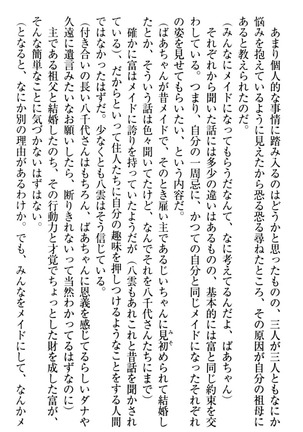 あまり個人的な事情に踏み入るのはどうかと思ったものの、三人が三人ともなにか
悩みを抱えているように見えたから恐る恐る尋ねたところ、その原因が自分の祖母に
あると教えられたのだ。
（みんなにメイドになってもらうだなんて、なに考えてるんだよ、ばあちゃん）
　それぞれから聞いた話には多少の違いはあるものの、基本的には富と同じ約束を交
わしている。つまり、自分の一周忌に、かつての自分と同じメイドになったそれぞれ
の姿を見せてもらいたい、という内容だ。
（ばあちゃんが昔メイドで、そのとき雇い主であるじいちゃんに見初められて結婚し
みそ
たとか、そういう話は色々聞いてたけど、なんでそれを八千代さんたちにまで）
　確かに富はメイドに誇りを持っていたようだが（八雲もあれこれと昔話を聞かされ
ている）、だからといって住人たちに自分の趣味を押しつけるようなことをする人間
ではなかったはずだ。少なくとも八雲はそう信じている。
（付き合いの長い八千代さんはもちろん、ばあちゃんに恩義を感じてるらしいダナや
久遠に遺言みたいなお願いしたら、断りきれないって当然わかってるはずなのに）
　主である祖父と結婚したのち、その行動力と才覚でちょっとした財を成した富が、
そんな簡単なことに気づかないはずはない。
（となると、なにか別の理由があるわけか。でも、みんなをメイドにして、なんかメ